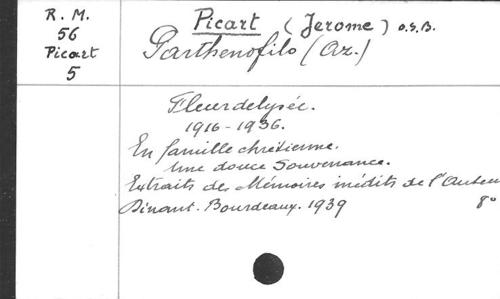 R. M.
56
Picart
5
Picart (Jerome) O.S.B.
Parthenofilo (Az.)
Fleurdelysée.
1916-1936.
En famille chrétienne.
Une douce Souvenance.
Extraits des Mémoires inédits de l'Auteu
Dinant. Bourdeaux. 1939
8°